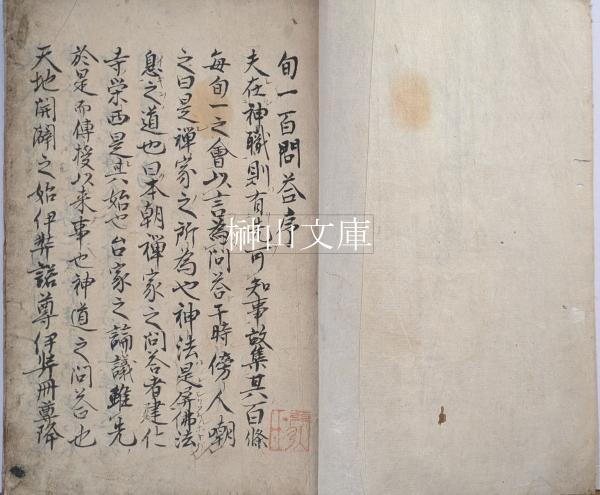 旬一百問荅序
夫在神職則有先可知事故集其百條
每旬一之會以言為問荅于時傍人嘲
之曰是禅家之所為也神法是屏佛法
息之道也曰本朝禅家之问荅者建仁
寺栄西是其始也台家之論議雖先
於是而傳授以来事也神道之问荅也
天地開闢之始伊弉諾尊伊弉冊尊降
榊山文庫